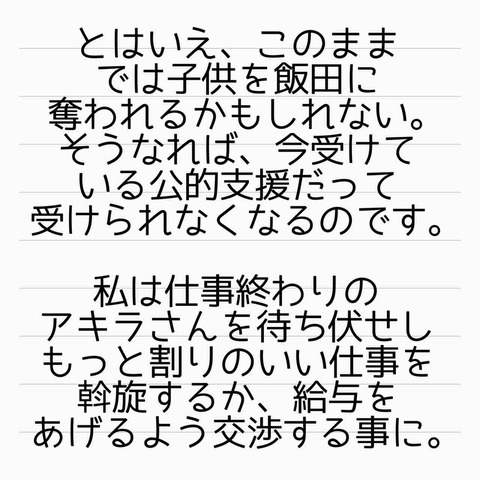 とはいえ、このまま
では子供を飯田に
奪われるかもしれない。
そうなれば、今受けて
いる公的支援だって
受けられなくなるのです。
私は仕事終わりの
アキラさんを待ち伏せし
もっと割りのいい仕事を
斡旋するか、給与を
あげるよう交渉する事に。